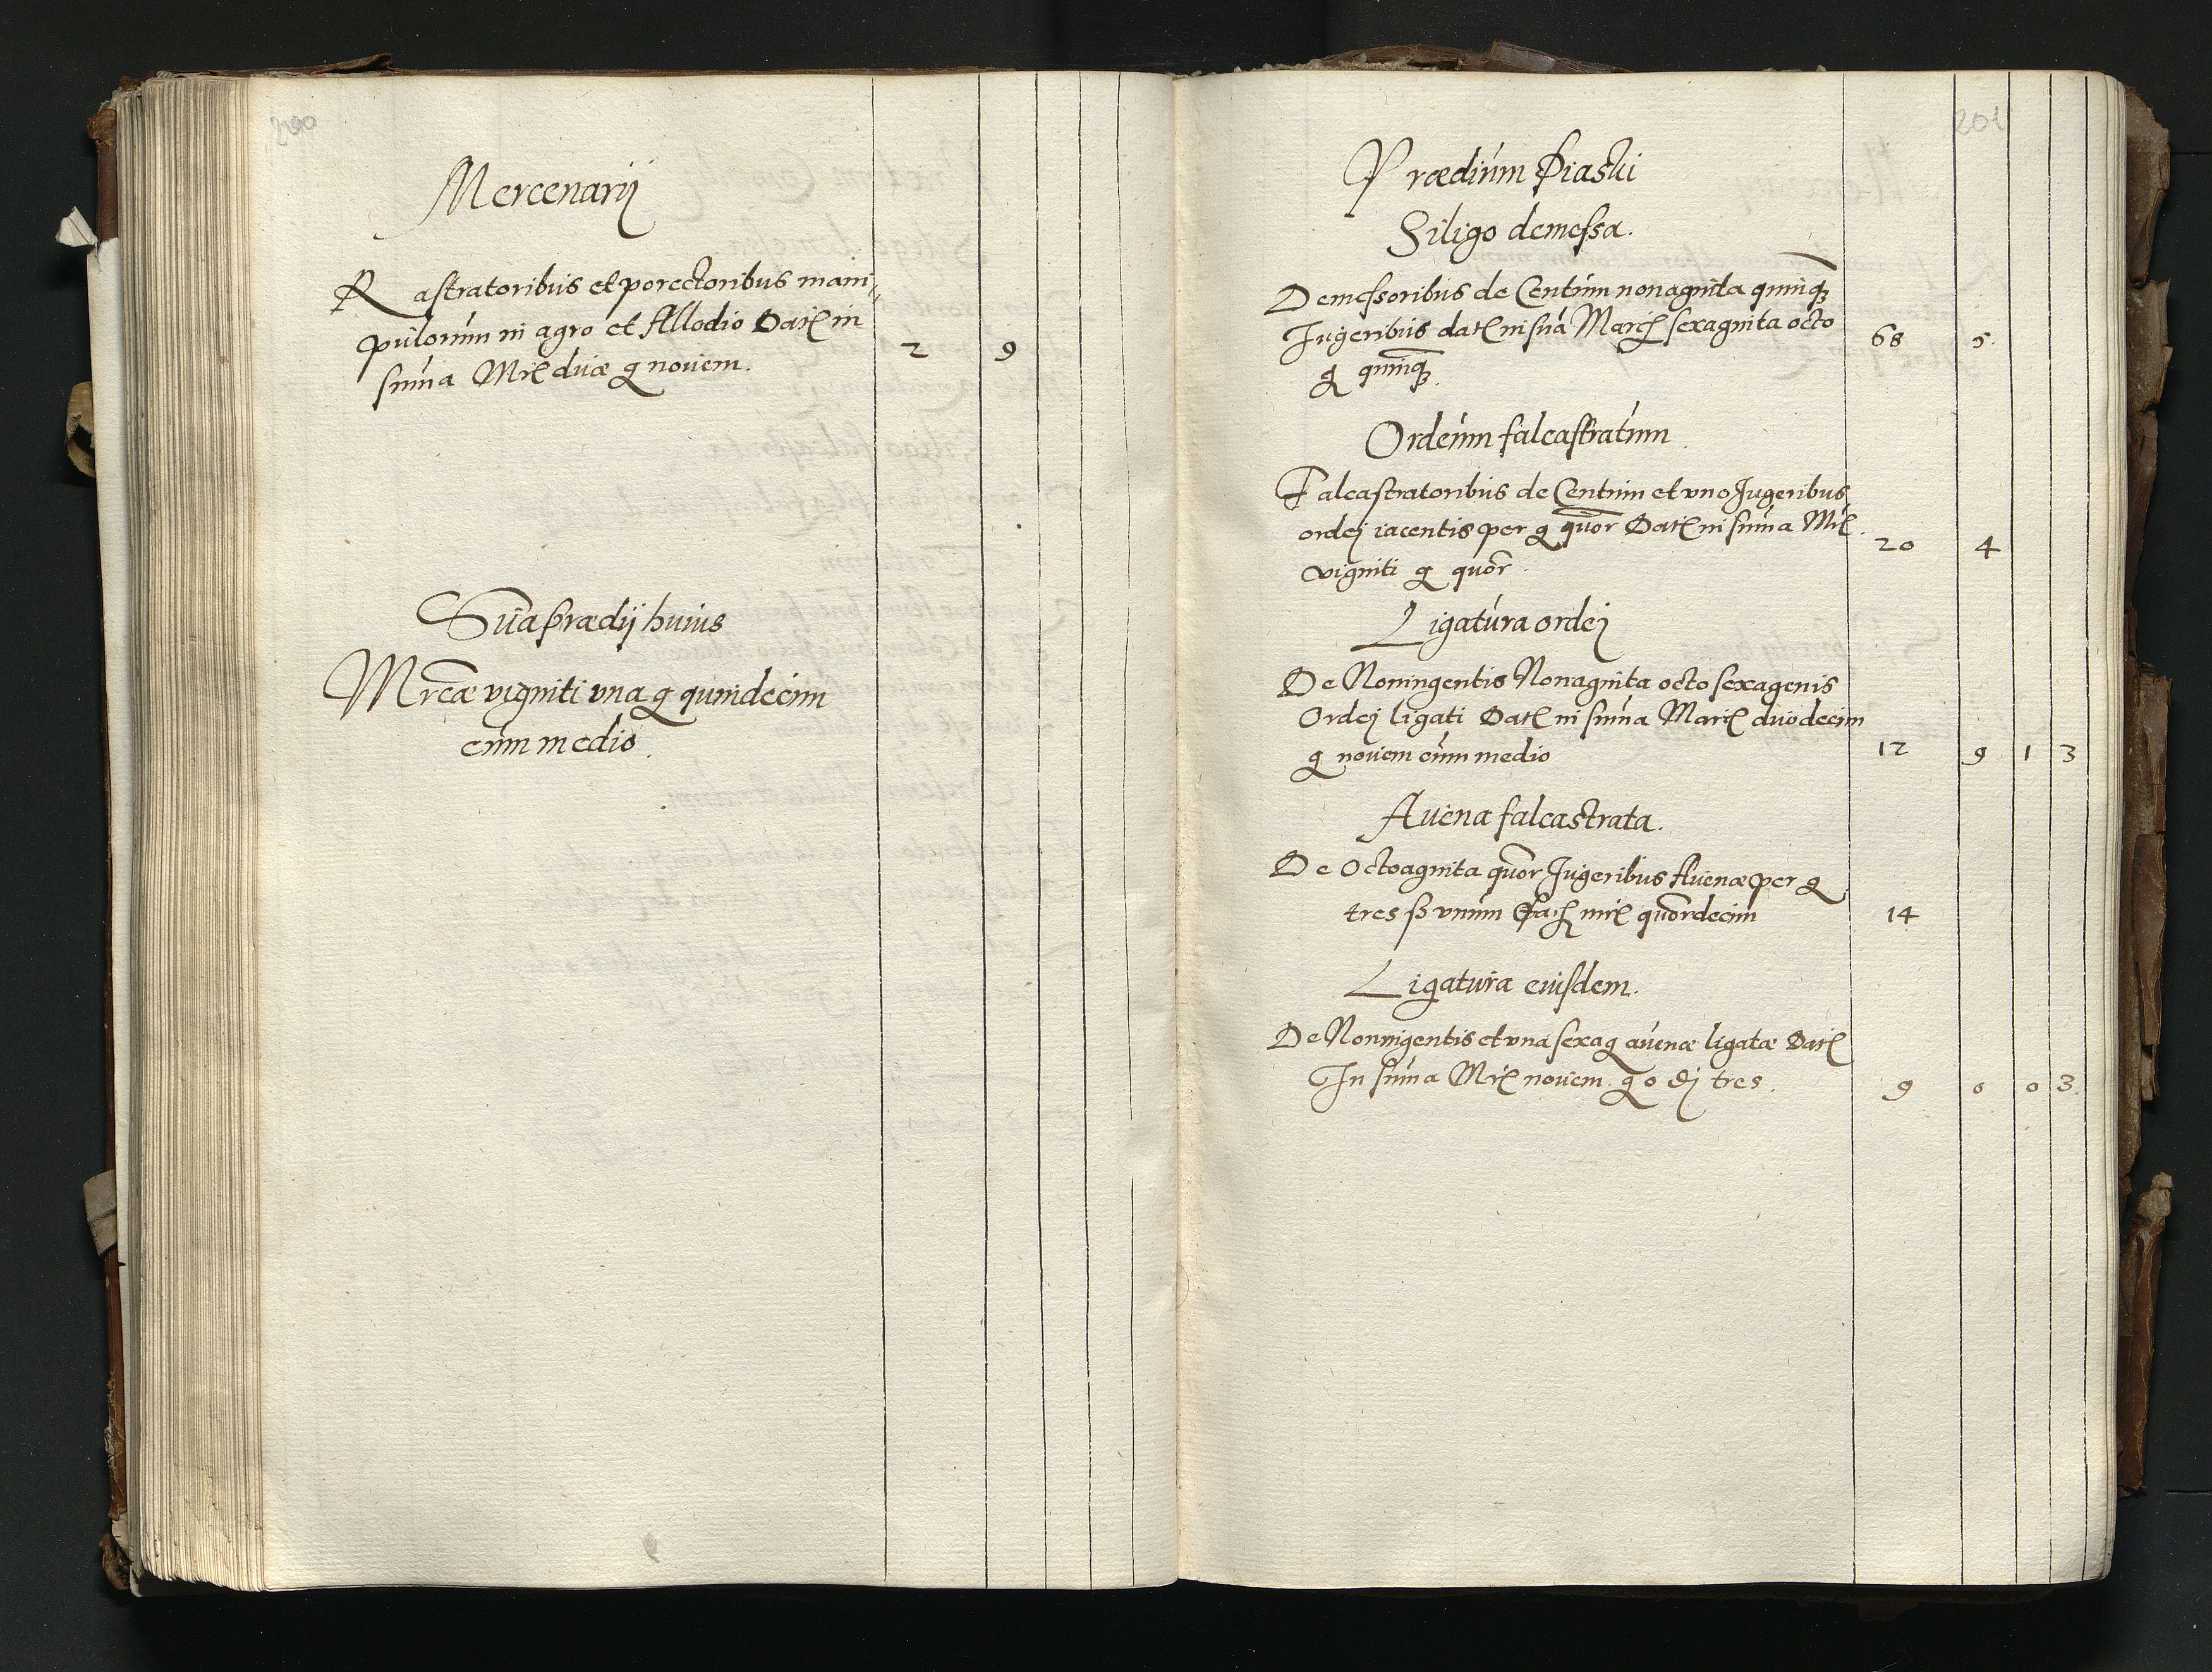 200
Mercenarij
Rastratoribus et porectoribus mani„
pulorum in agro et Allodio Datę in
suma Mrę duæ g novem. 2 9
Sūa prædij huius
Mrcæ viginti una g quindecim
cum medio.
201
Prædium Piaski
Siligo demessa.
Demessoribus de Centum nonaginta quinqȝ
Iugeribus datę in sua Marcę sexaginta octo
g quinqȝ. 68 5.
Ordeum falcastratum
Falcastratoribus de Centum et uno Iugeribus
ordej iacentis per g quor Datę in suma Mrę.
viginti g quor. 20 4
Ligatura ordej
De Noningentis Nonaginta octo sexagenis
Ordej ligati Datę in suma Marcę duodecim
g novem cum medio 12 9 1 3
Avena falcastrata.
De Octoaginta quor Iugeribus Avenæ per g
tres ß unum Datę mrę quordecim 14
Ligatura eiusdem.
De Noningentis et una sexag avenæ ligatæ Datę
In suma Mrę novem. g o dj tres. 9 0 0 3.